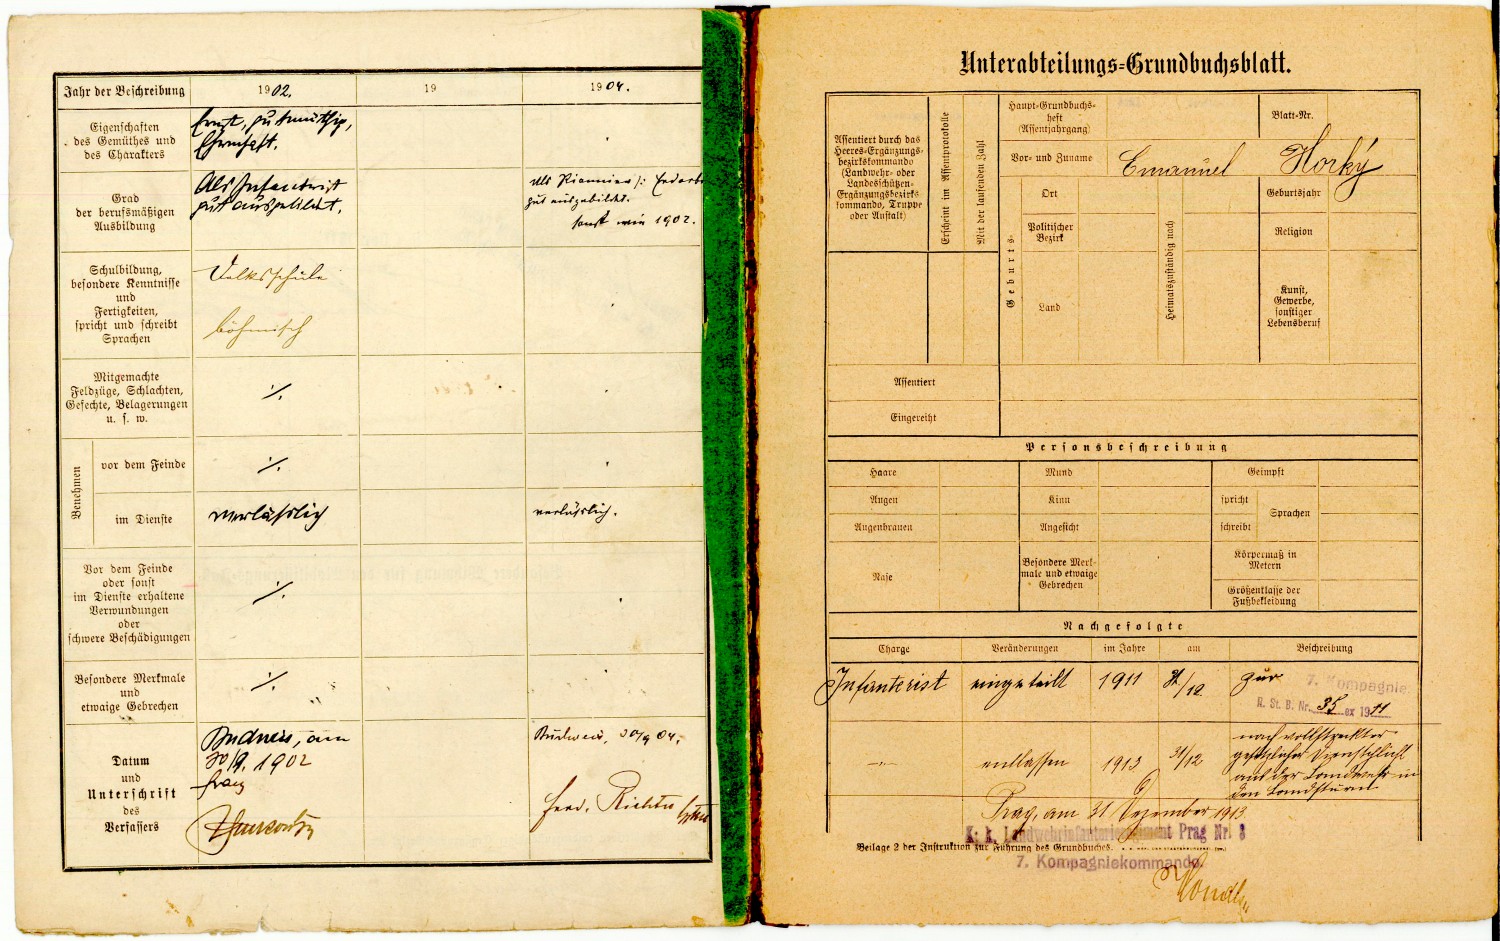 Jahr der Beschreibung
1902.
19
1904.
Eigenschaften
des Gemüthes und
des Charakters
Ernst, gutmüthig,
Ehrenhaft.
Grad
der berufsmäßigen
Ausbildung
Als Infanterist
gut ausgebildet.
Als Pionnier
gut ausgebildet.
sonst wie 1902.
Schulbildung,
besondere Kenntnisse
und
Fertigkeiten,
spricht und schreibt
Sprachen
Volksschule
böhmisch
Mitgemachte
Feldzüge, Schlachten,
Gefechte, Belagerungen
u. s. w.
·/.
Benehmen
vor dem Feinde
·/.
im Dienste
verläßlich
verläßlich.
Vor dem Feinde
oder sonst
im Dienste erhaltene
Verwundungen
oder
schwere Beschädigungen
·/.
Besondere Merkmale
und
etwaige Gebrechen
·/.
Datum
und
Unterschrift
des
Verfassers
Budweis, am
30/9. 1902
Franz
Budweis, 30/9 04.
Ferd. Richter
Unterabteilungs-Grundbuchsblatt.
Assentiert durch das
Heeres-Ergänzungs-
bezirkskommando
(Landwehr- oder
Landesschützen-
Ergänzungsbezirks-
kommando, Truppe
oder Anstalt)
Erscheint im Assentprotokolle
Mit der laufenden Zahl
Haupt-Grundbuchs-
heft
(Assentjahrgang)
Blatt-Nr.
Vor- und Zuname
Emanuel Horký
Geburts-
Ort
Politischer
Bezirk
Land
Heimatszuständig nach
Geburtsjahr
Religion
Kunst,
Gewerbe,
sonstiger
Lebensberuf
Assentiert
Eingereiht
Personsbeschreibung
Haare
Mund
Geimpft
Augen
Kinn
spricht
Sprachen
Augenbrauen
Angesicht
schreibt
Nase
Besondere Merk-
male und etwaige
Gebrechen
Körpermaß in
Metern
Größenklasse der
Fußbekleidung
Nachgefolgte
Charge
Veränderungen
im Jahre
am
Beschreibung
Infanterist
eingeteilt
1911
31/12
zur 7. Kompagnie.
R. St. B. Nr. 35 ex 1911
-"-
entlassen
1913
31/12
nach vollstreckter
gesetzlicher Dienstpflicht
aus der Landwehr in
den Landsturm
Prag, am 31 Dezember 1913
K. k. Landwehrinfanterieregiment Prag Nr. 8
Beilage 2 der Instruktion zur Führung des Grundbuches.
7. Kompagniekommando.